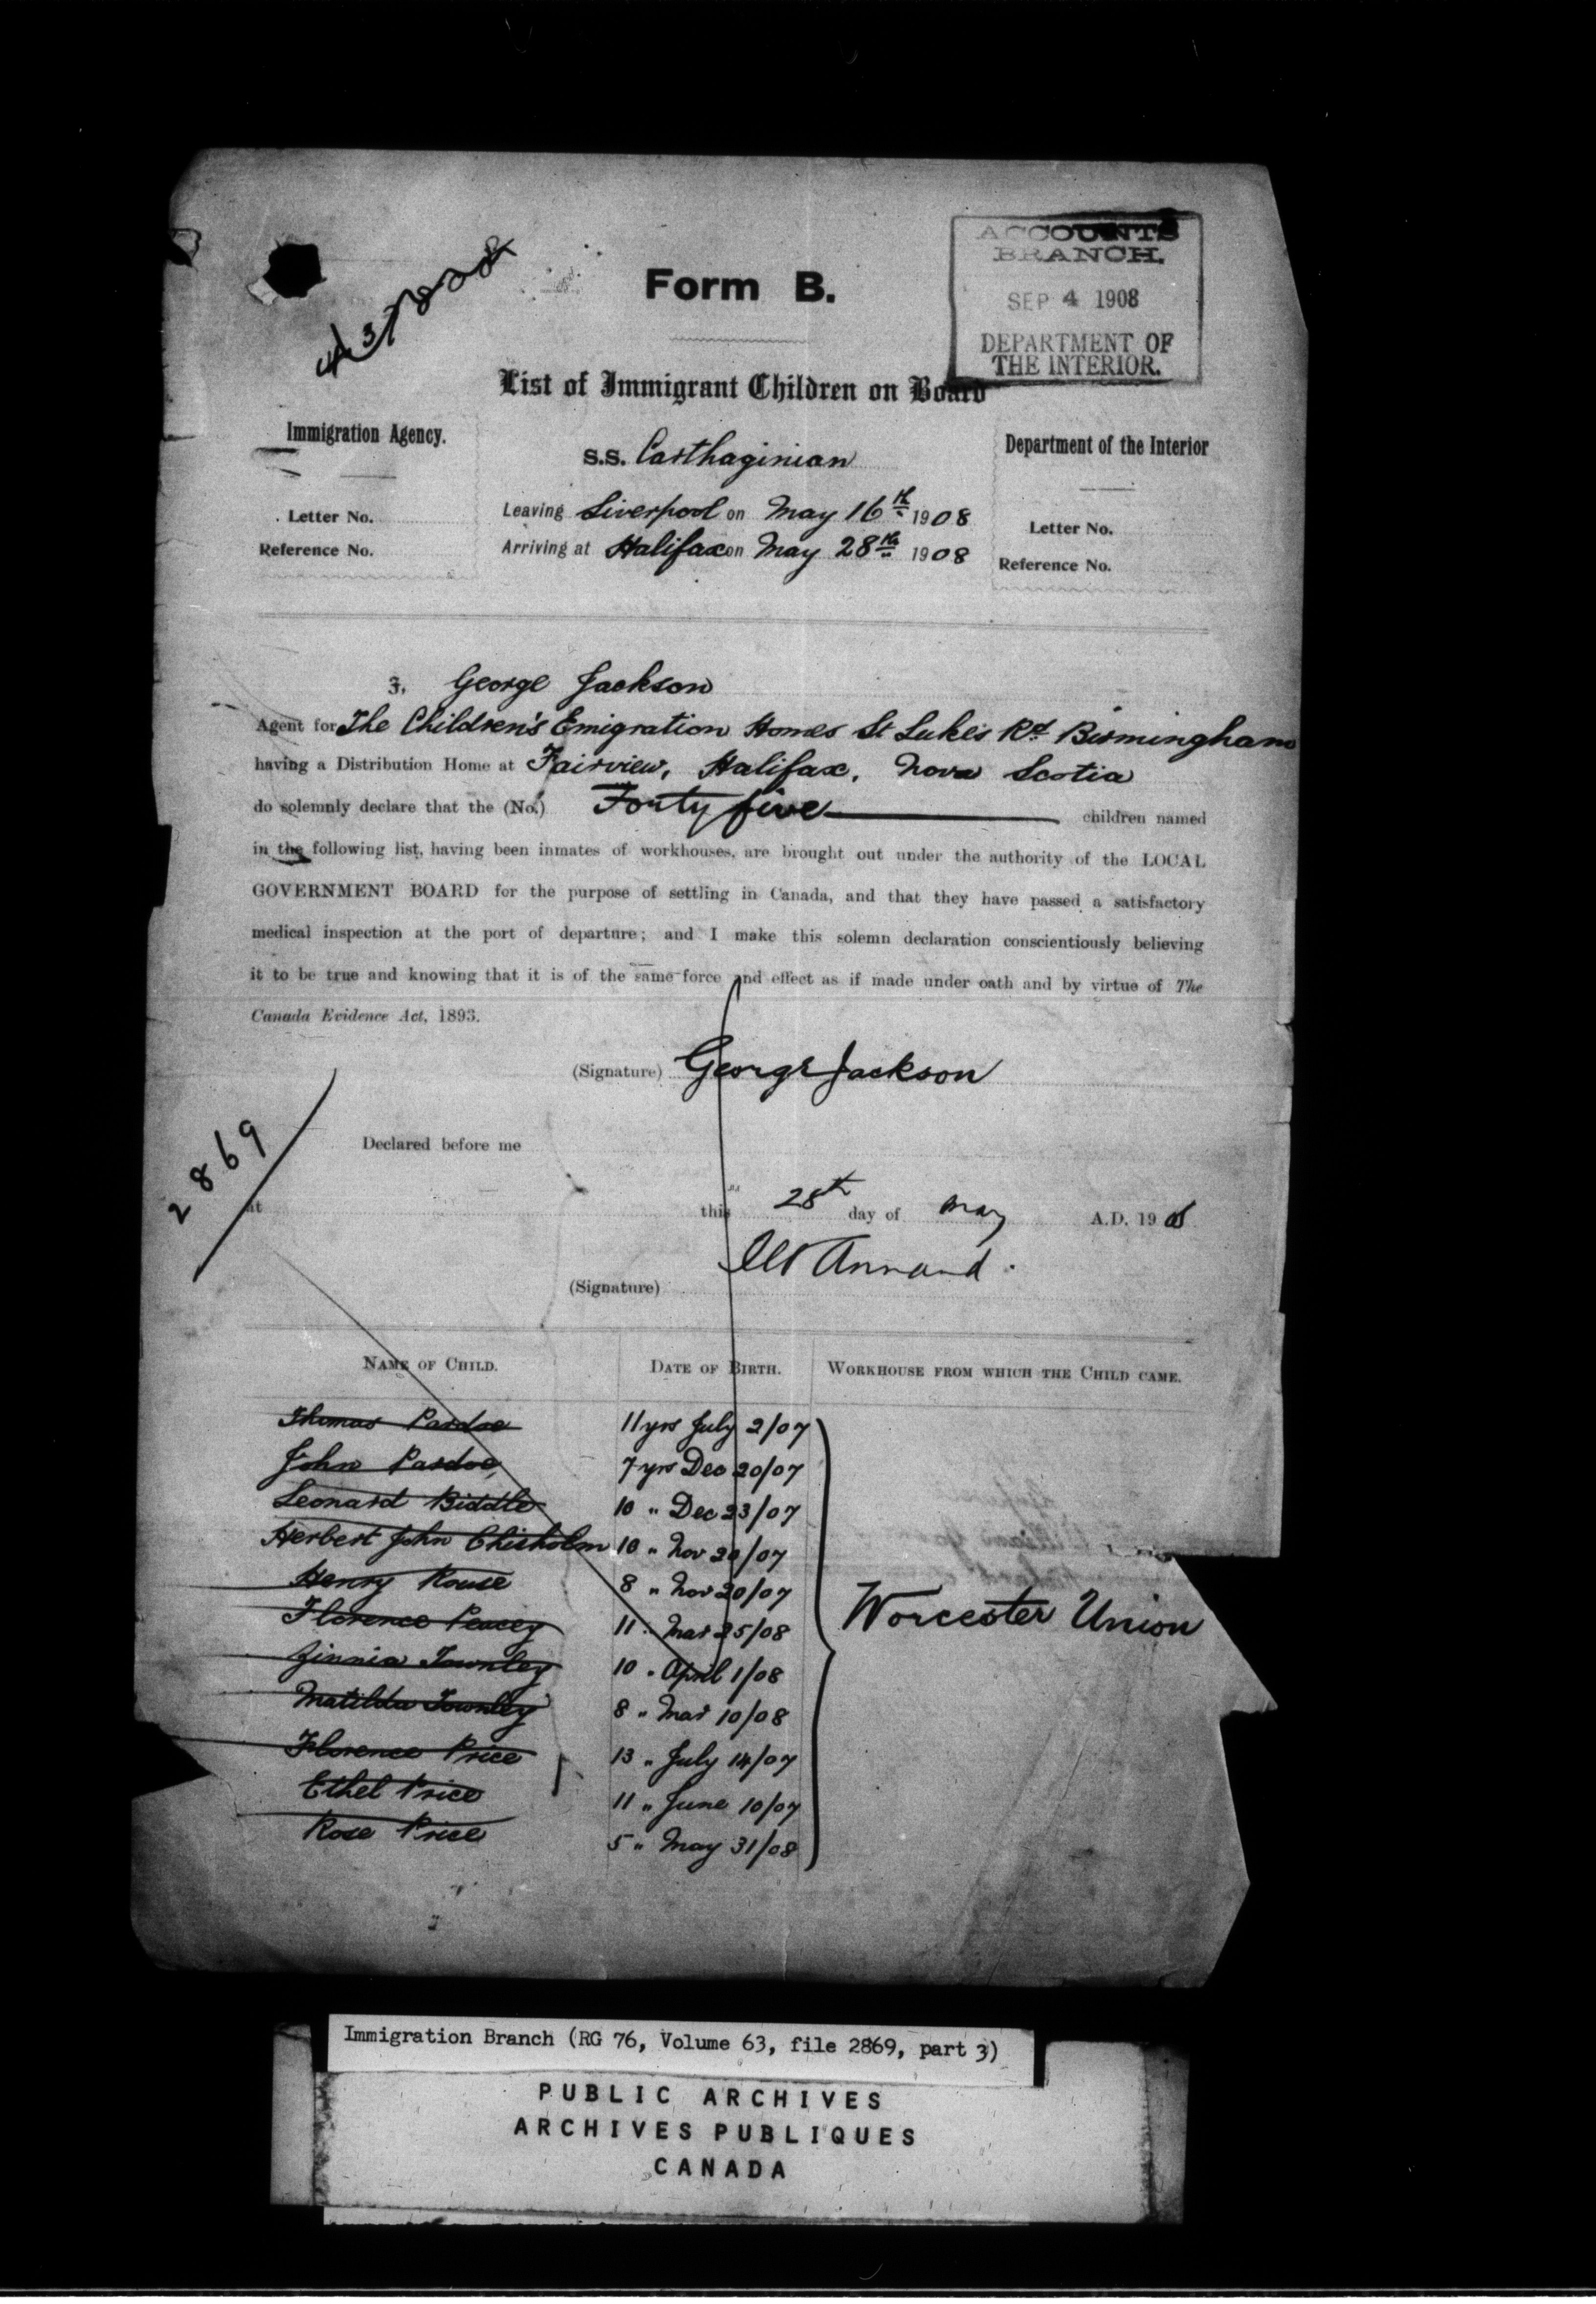 Form B.
ACCOUNTS
BRANCH.
SEP 4 1908
DEPARTMENT OF
THE INTERIOR.
List of Immigrant Children on Board
Immigration Agency.
s.s. Carthaginian
Department of the Interior
Leaving Liverpool on May 16th 1908
Letter No.
Letter No.
Arriving at Halifax on May 28th 1908
Reference No.
Reference No.
I, George Jackson
Agent for The Children's Emigration Homes St Luke's Rd Birmingham
having a Distribution Home at Fairview, Halifax, Nova Scotia
do solemnly declare that the (No.) Forty five children named
in the following list, having been inmates of workhouses, are brought out under the authority of the LOCAL
GOVERNMENT BOARD for the purpose of settling in Canada, and that they have passed a satisfactory
medical inspection at the port of departure; and I make this solemn declaration conscientiously believing
it to be true and knowing that it is of the same force and effect as if made under oath and by virtue of The
Canada Evidence Act, 1893.
(Signature) George Jackson
2869
Declared before me
at this 28th day of May A.D. 1908
(Signature) Annand.
NAME OF CHILD. DATE OF BIRTH. WORKHOUSE FROM WHICH THE CHILD CAME.
Thomas Pardoe 11 yrs July 2/07
John Pardoe, 7 yrs Dec 20/07
Leonard Biddle 10 " Dec 23/07
Herbert John Chisholm 10 " Nov 20/07
Henry Rouse 8 " Nov 20/07
Florence Peacey 11 " Mar 25/08
Worcester Union
Zinnia Townley 10 " April 1/08
Matilda Townley 8 " Mar 10/08
Florence Price 13 " July 14/07
Ethel Price 11 " June 10/07
Rose Price 5 " May 31/08
Immigration Branch (RG 76, Volume 63, file 2869, part 3)
PUBLIC ARCHIVES
ARCHIVES PUBLIQUES
CANADA